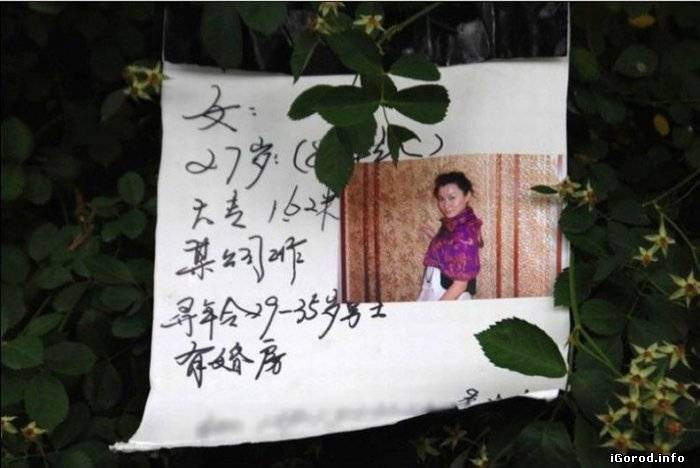 女:
27岁:(
大专 1.62米
某公司工作
寻年令29-35岁男士
有婚房
iGorod.info